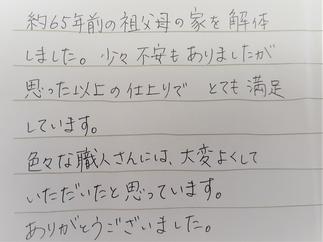 約65年前の祖父母の家を解体
しました。少々不安もありましたが
思った以上の仕上りで とても満足
しています。
色々な職人さんには、大変よくして
いただいたと思っています。
ありがとうございました。